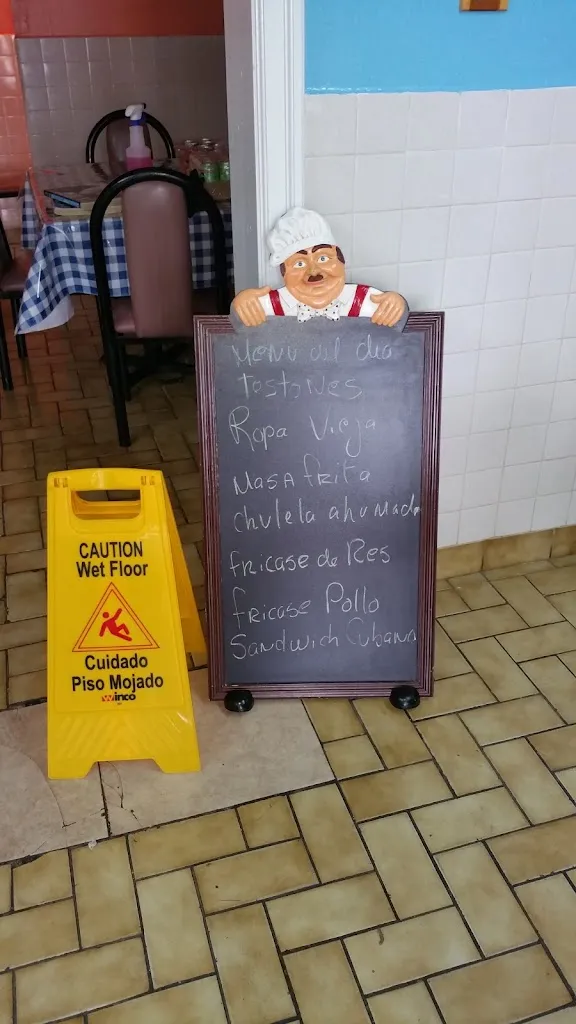 Menu del dia
Tostones
Ropa Vieja
Masa frita
Chuleta ahumada
fricase de Res
fricase Pollo
Sandwich Cubano
CAUTION
Wet Floor
Cuidado
Piso Mojado
winco